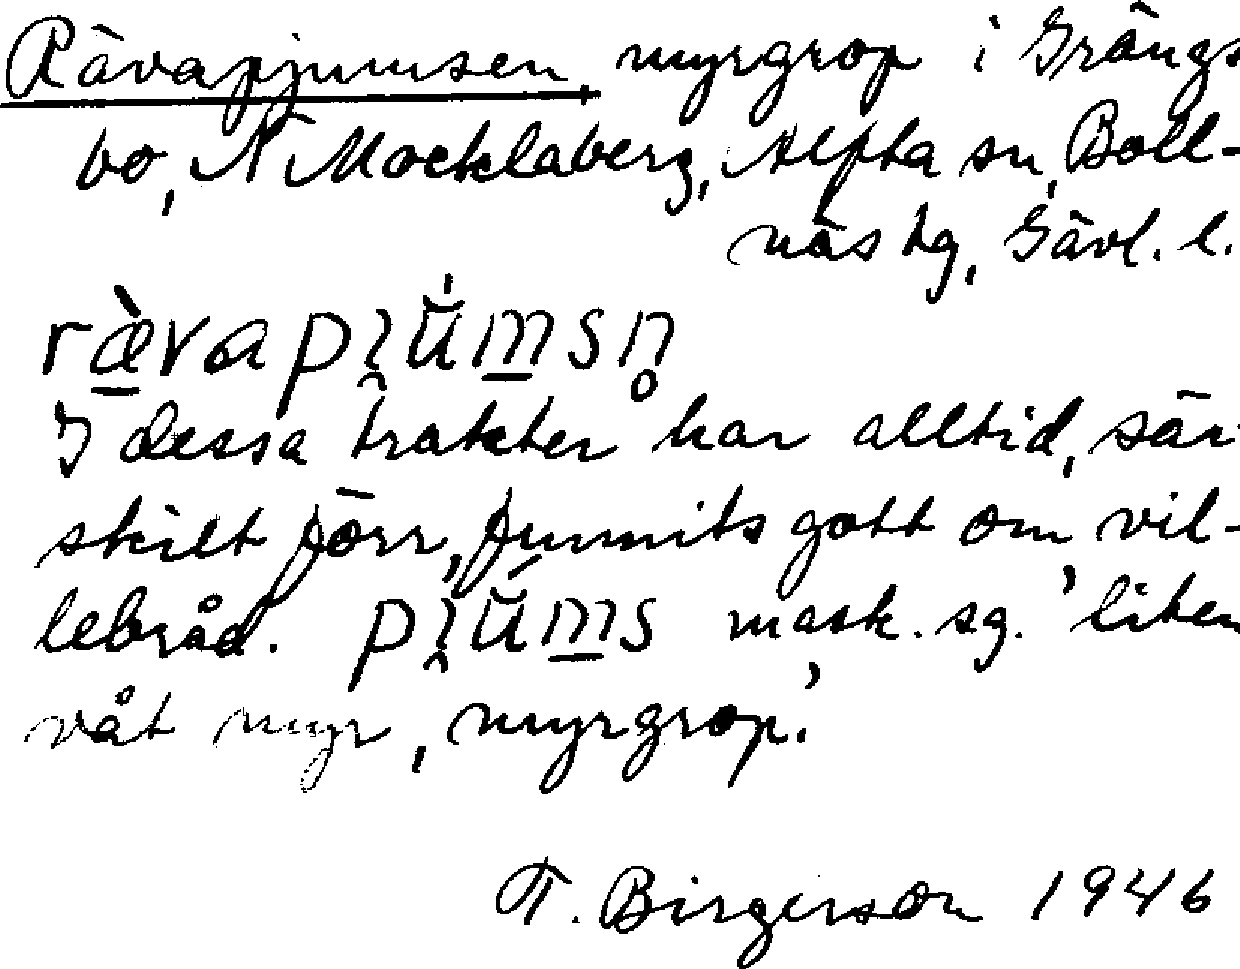 Rävapjumsen, myrgrop i Grängs
bo, N Mocklaberg, Alfta sn, Boll-
näs tg, Gävl. l.
I dessa trakter har alltid, sär-
skilt förr, funnits gott om vil-
lebråd. mask. sg. 'liten
våt myr, myrgrop.'
T. Birgerson 1946